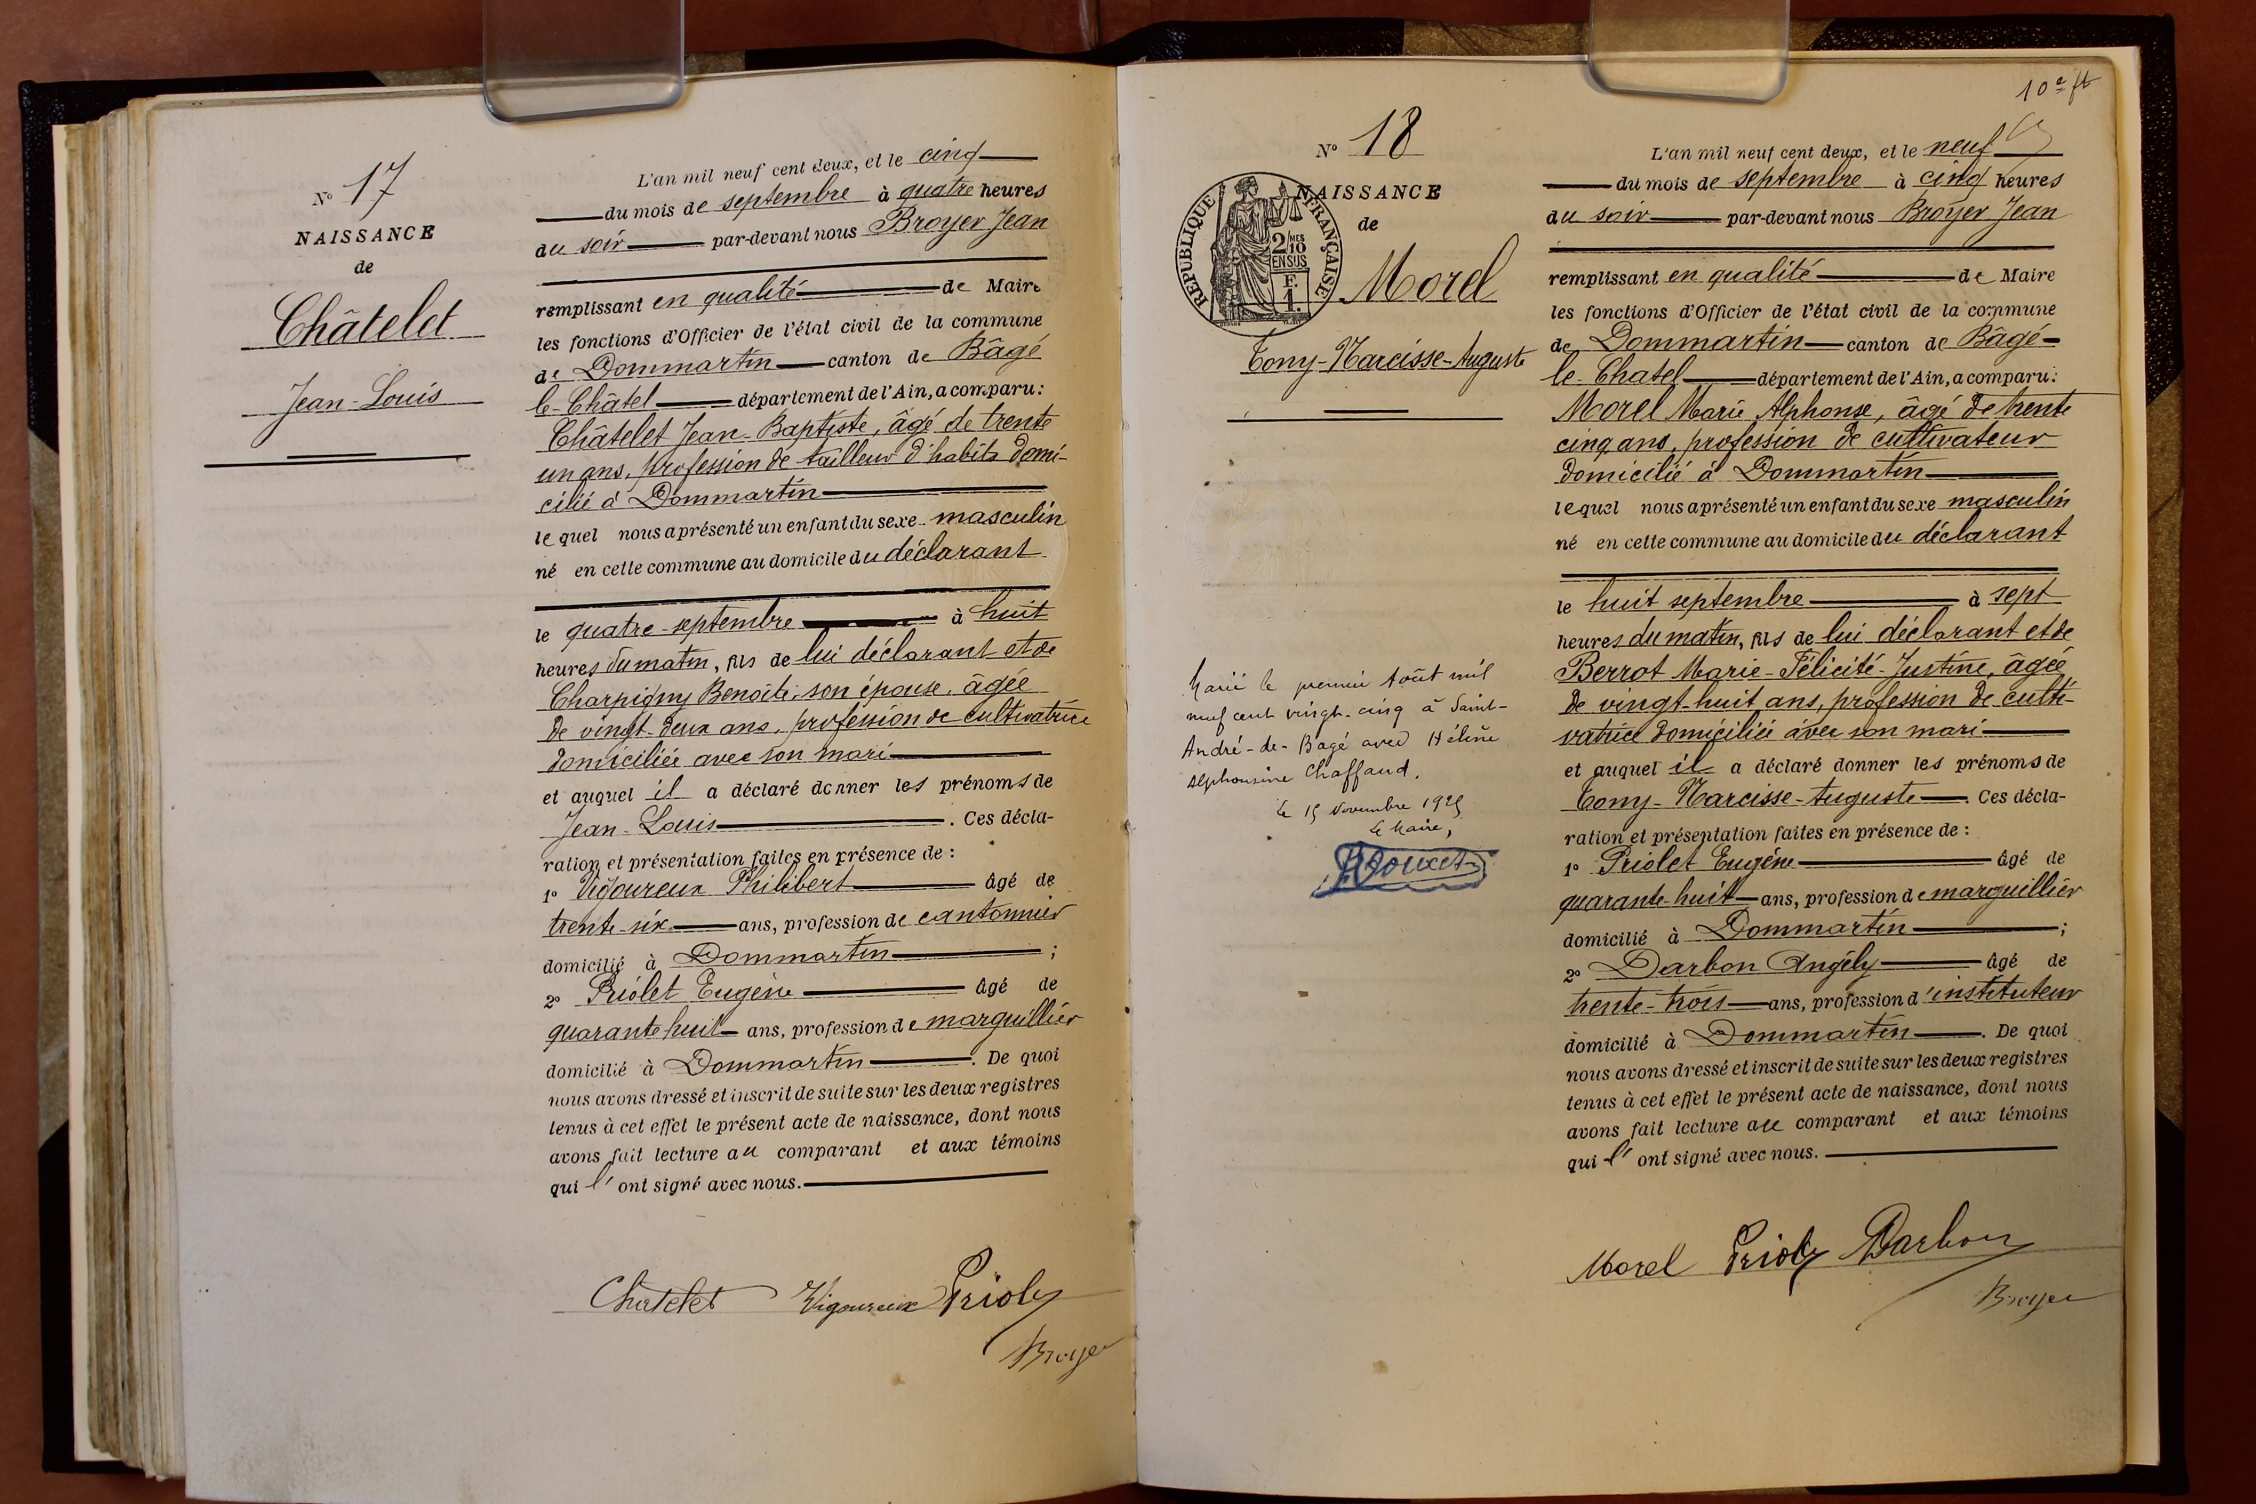 Nº 17
NAISSANCE
de
Châtelet
Jean-Louis
L'an mil neuf cent deux, et le cinq
du mois de septembre à quatre heures
du soir par-devant nous Broyer Jean
remplissant en qualité de Maire
les fonctions d'Officier de l'état civil de la commune
de Dommartin canton de Bâgé
le-Châtel département de l'Ain, a comparu:
Châtelet Jean-Baptiste, âgé de trente
un ans, profession de tailleur d'habits domi-
cilié à Dommartin
lequel nous a présenté un enfant du sexe masculin
né en cette commune au domicile du déclarant
le quatre septembre à huit
heures du matin, fils de lui déclarant et de
Charpigny Benoîte, son épouse, âgée
de vingt-deux ans, profession de cultivatrice
domiciliée avec son mari
et auquel il a déclaré donner les prénoms de
Jean-Louis. Ces décla-
ration et présentation faites en présence de:
1º Vigoureux Philibert âgé de
trente-six ans, profession de cantonnier
domicilié à Dommartin;
2º Priolet Eugène âgé de
quarante huit ans, profession de marguillier
domicilié à Dommartin. De quoi
nous avons dressé et inscrit de suite sur les deux registres
tenus à cet effet le présent acte de naissance, dont nous
avons fait lecture au comparant et aux témoins
qui l' ont signé avec nous.
Chatelet Vigoureux Priolet
Broyer
10e ft
Nº 18
NAISSANCE
de
REPUBLIQUE FRANÇAISE
2/10 MES
EN SUS
F.
1.
Morel
Tony-Narcisse-Auguste
L'an mil neuf cent deux, et le neuf
du mois de septembre à cinq heures
du soir par-devant nous Broyer Jean
remplissant en qualité de Maire
les fonctions d'Officier de l'état civil de la commune
de Dommartin canton de Bâgé-
le-Chatel département de l'Ain, a comparu:
Morel Marie Alphonse, âgé de trente
cinq ans, profession de cultivateur
domicilié à Dommartin
lequel nous a présenté un enfant du sexe masculin
né en cette commune au domicile du déclarant
le huit septembre à sept
heures du matin, fils de lui déclarant et de
Berrot Marie-Félicité-Justine, âgée
de vingt-huit ans, profession de culti-
vatrice domiciliée avec son mari
et auquel il a déclaré donner les prénoms de
Tony-Narcisse-Auguste. Ces décla-
ration et présentation faites en présence de:
1º Priolet Eugène âgé de
quarante-huit ans, profession de marguillier
domicilié à Dommartin;
2º Darbon Angély âgé de
trente-trois ans, profession d'instituteur
domicilié à Dommartin. De quoi
nous avons dressé et inscrit de suite sur les deux registres
tenus à cet effet le présent acte de naissance, dont nous
avons fait lecture au comparant et aux témoins
qui l' ont signé avec nous.
Marié le premier Août mil
neuf cent vingt-cinq à Saint-
André-de-Bagé avec Hélène
Alphonsine Chaffaud.
Le 15 Novembre 1925
Le Maire,
Morel Priolet Darbon
Broyer